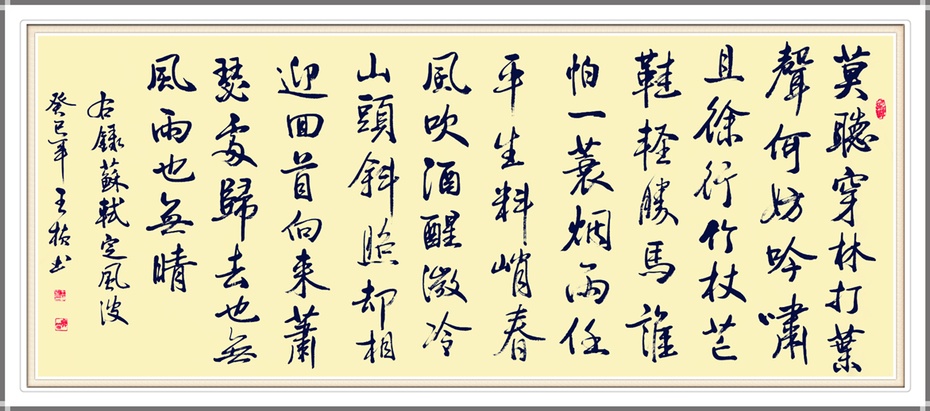 莫聽穿林打葉
聲何妨吟嘯
且徐行竹杖芒
鞋軽勝馬誰
怕一蓑烟雨任
平生料峭春
風吹酒醒微冷
山頭斜照却相
迎回首向来蕭
瑟處歸去也無
風雨也無晴
右錄蘇軾定風波
癸巳年王